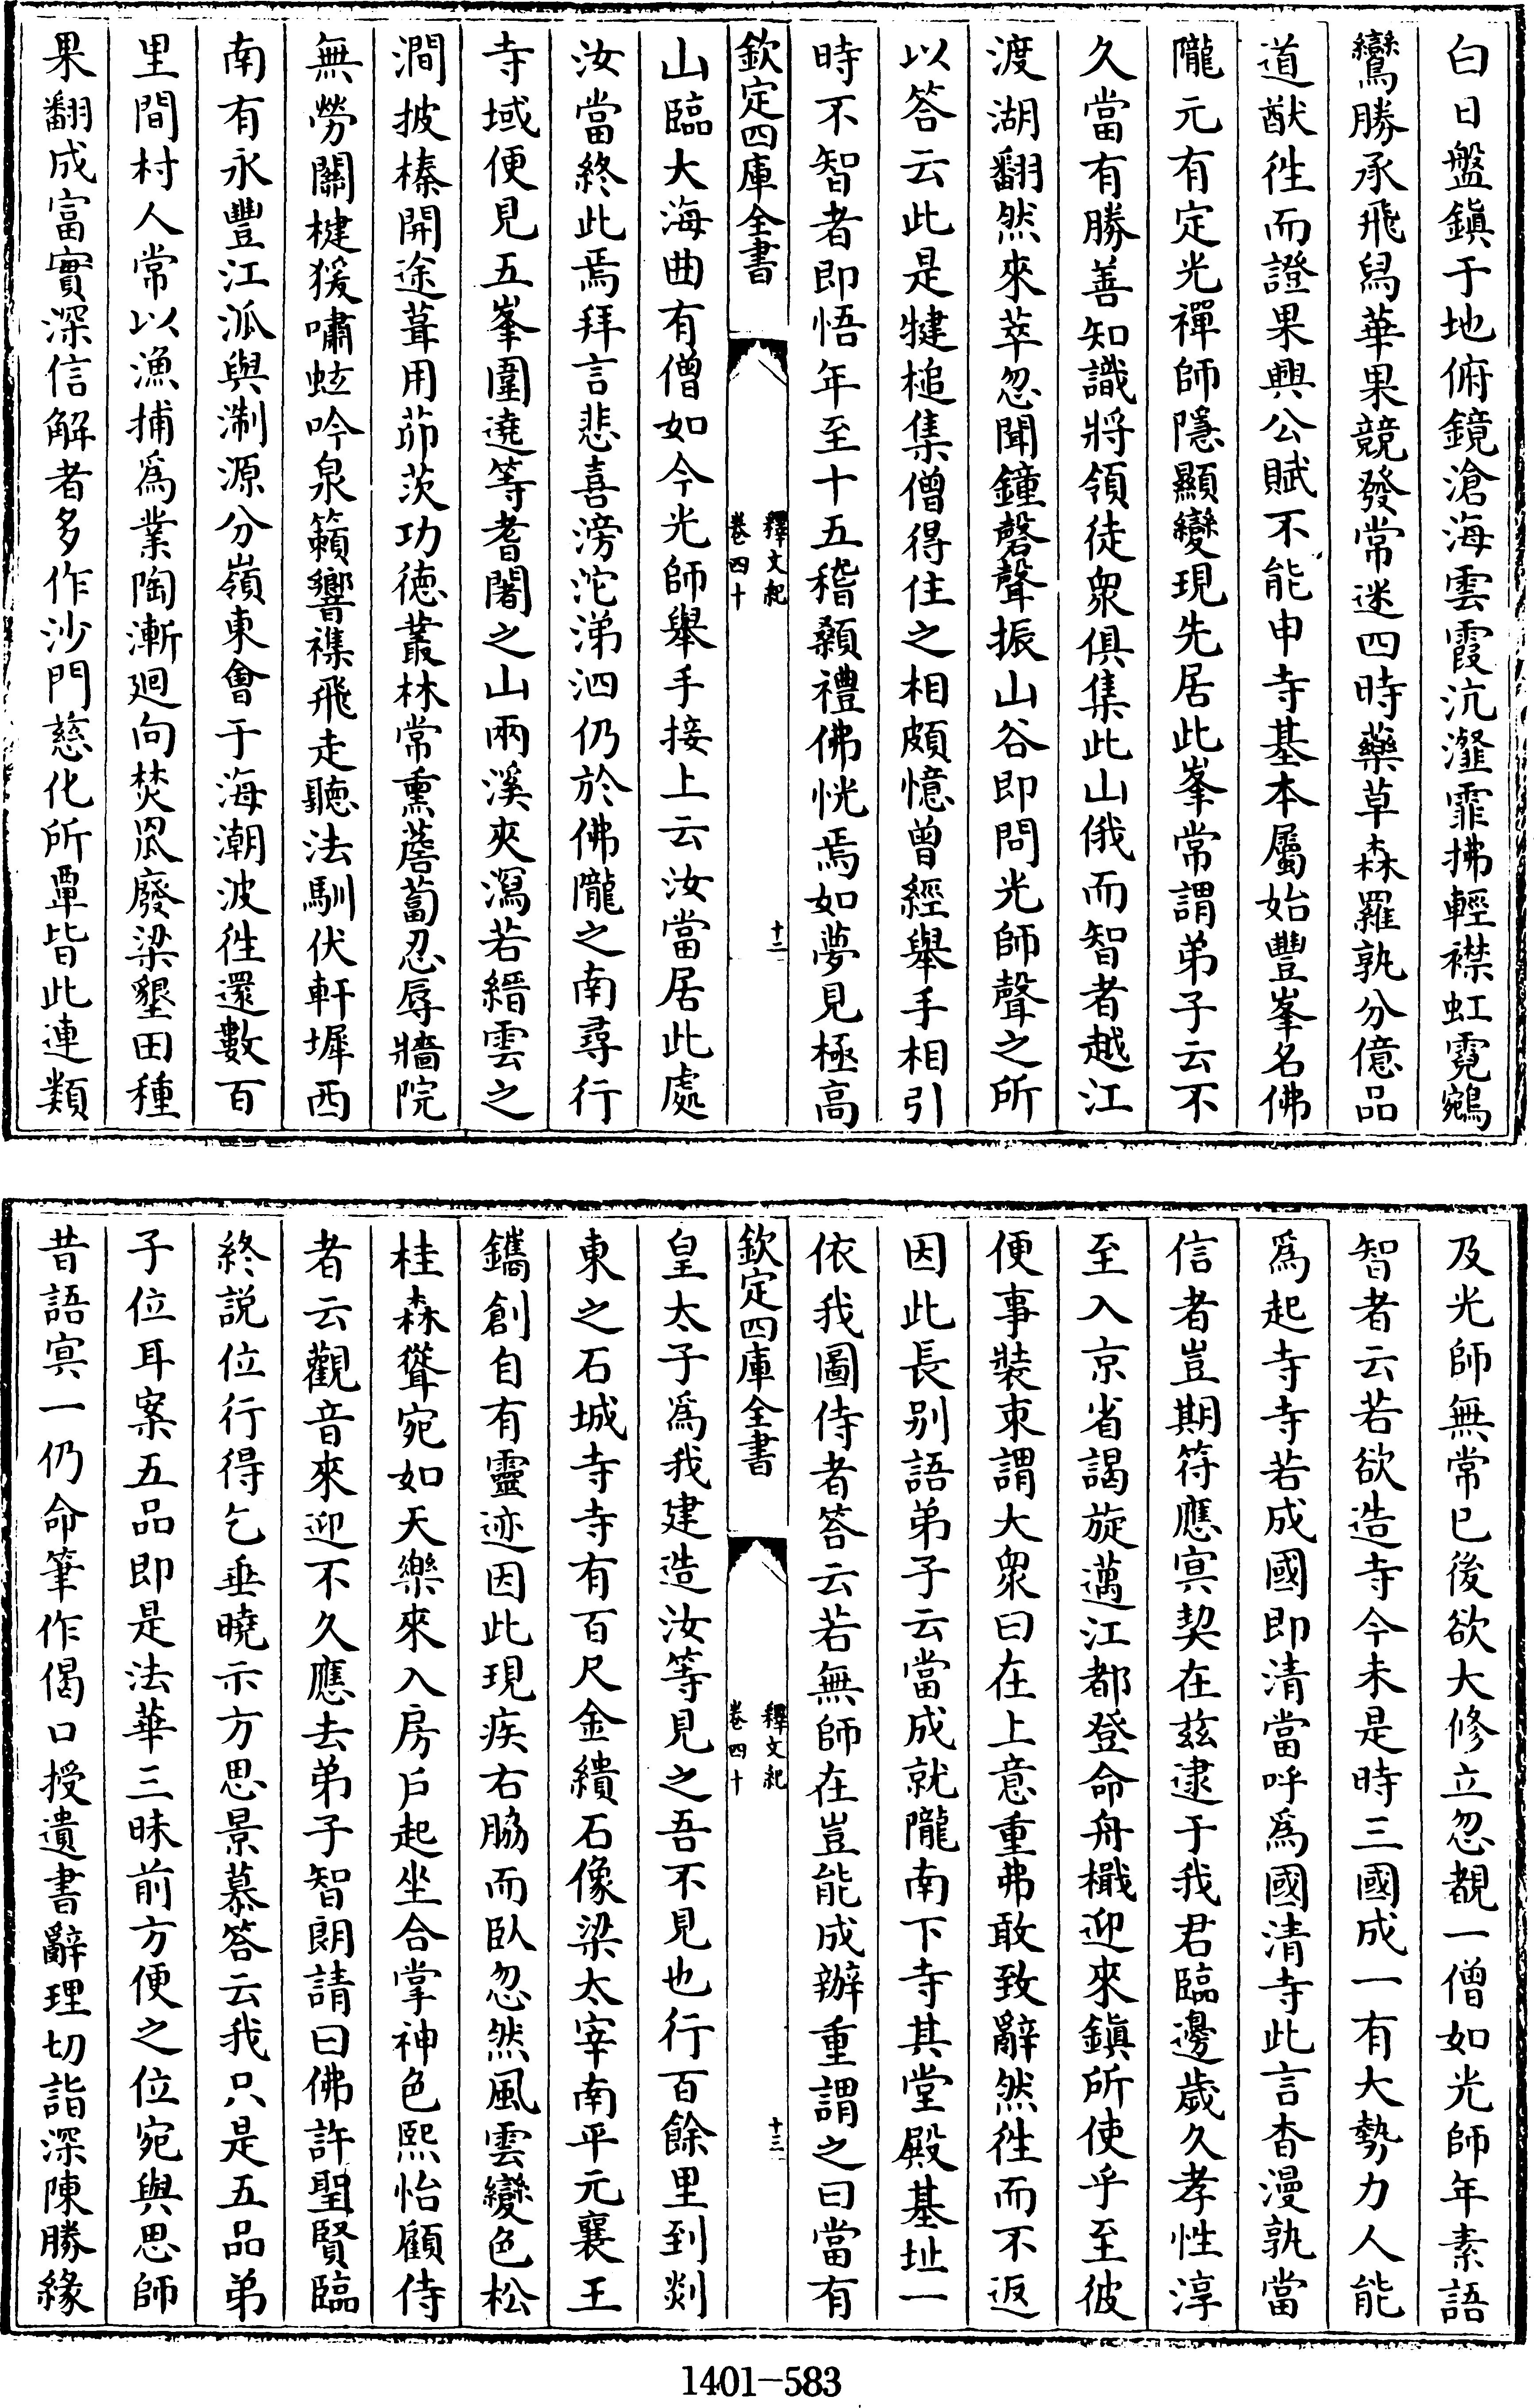 白日盤鎮于地俯鏡滄海雲霞沆瀣霏拂輕襟虹霓鵷
鸞勝承飛舄華果競發常迷四時藥草森羅孰分億品
道猷徃而證果興公賦不能申寺基本屬始豐峯名佛
隴元有定光禪師隱顯變現先居此峯常謂弟子云不
久當有勝善知識將領徒衆俱集此山俄而智者越江
渡湖翻然來萃忽聞鐘磬聲振山谷即問光師聲之所
以答云此是犍槌集僧得住之相頗憶曾經舉手相引
時不智者即悟年至十五稽顙禮佛恍焉如夢見極高
欽定四庫全書
釋文紀
卷四十
十二
山臨大海曲有僧如今光師舉手接上云汝當居此處
汝當終此焉拜言悲喜滂沱涕泗仍於佛隴之南尋行
寺域便見五峯圍遶等耆闍之山兩溪夾瀉若縉雲之
澗披榛開途葺用茆茨功德叢林常熏薝蔔忍辱牆院
無勞關楗猨嘯蛟吟泉籟響襍飛走聽法馴伏軒墀西
南有永豐江派與淛源分嶺東會于海潮波徃還數百
里間村人常以漁捕爲業陶漸廻向焚罛廢梁墾田種
果翻成富實深信解者多作沙門慈化所覃皆此連類
及光師無常已後欲大修立忽覩一僧如光師年素語
智者云若欲造寺今未是時三國成一有大勢力人能
爲起寺寺若成國即清當呼爲國清寺此言杳漫孰當
信者豈期符應㝠契在兹逮于我君臨邊歲久孝性淳
至入京省謁旋邁江都登命舟檝迎來鎮所使乎至彼
便事裝束謂大衆曰在上意重弗敢致辭然徃而不返
因此長别語弟子云當成就隴南下寺其堂殿基址一
依我圖侍者答云若無師在豈能成辦重謂之曰當有
欽定四庫全書
釋文紀
卷四十
十三
皇太子爲我建造汝等見之吾不見也行百餘里到剡
東之石城寺寺有百尺金繢石像梁太宰南平元襄王
鐫創自有靈迹因此現疾右脇而臥忽然風雲變色松
桂森聳宛如天樂來入房户起坐合掌神色熙怡顧侍
者云觀音來迎不久應去弟子智朗請曰佛許聖賢臨
終説位行得乞垂曉示方思景慕答云我只是五品弟
子位耳案五品即是法華三昧前方便之位宛與思師
昔語㝠一仍命筆作偈口授遺書辭理切詣深陳勝緣
1401—583